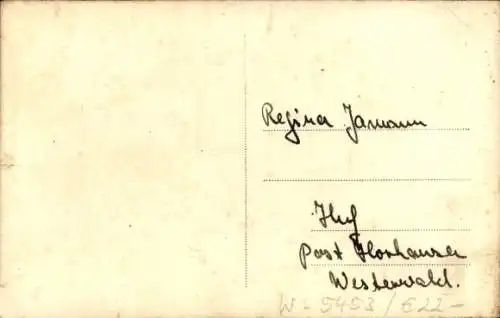 Regina Jamann
Huf
Post Horhausen
Westerwald.
W-5453/€22-